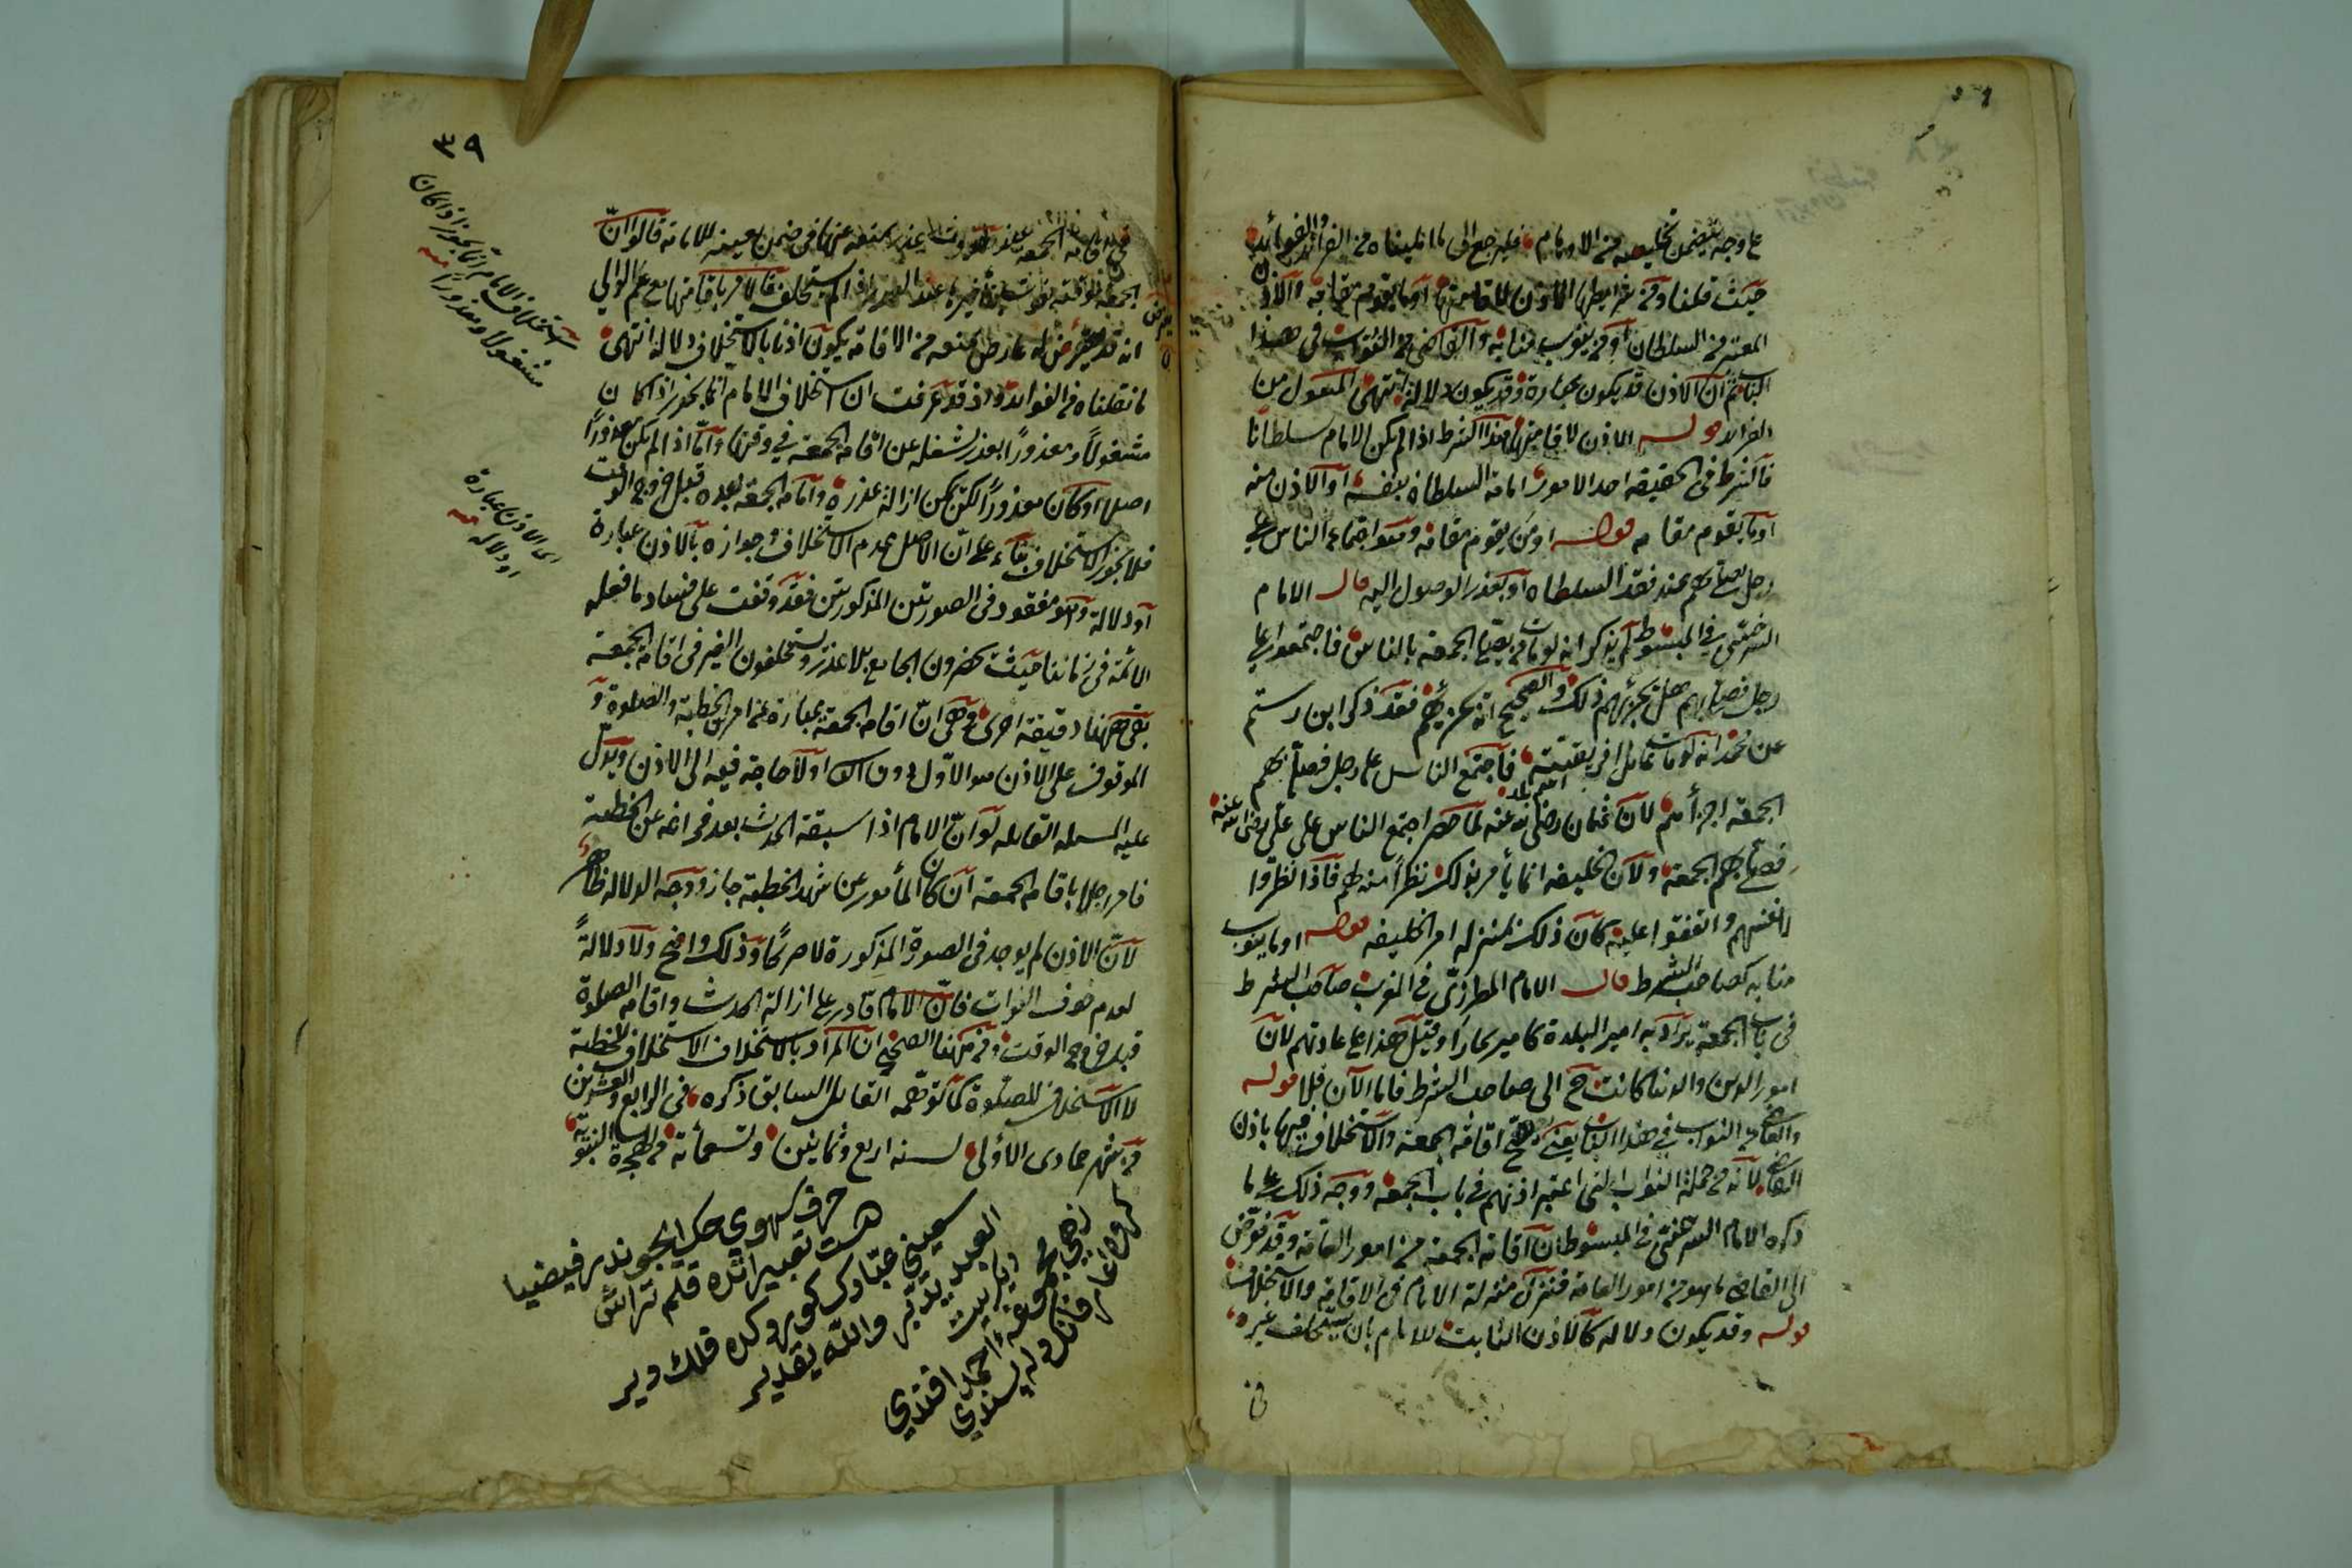 على وجه يتضمن تخليصه من الاوهام فليرجع الى ما امليناه من الفرائد والفوائد
حيث قلنا وفي شرايطها الاذن لاقامتها او ما يقوم مقامه والاذن
المعتبر من السلطان او من ينوب منابه والقاضي من النواب في هذا
الباب ثم ان الاذن قد يكون عبارة وقد يكون دلالة انتهى المنقول من
الفرائد قوله الاذن لاقامتها هذا الشرط اذا لم يكن الامام سلطانا
فالشرط في الحقيقة احد الامور امامة السلطان بنفسه او الاذن منه
او ما يقوم مقامه قوله او من يقوم مقامه وهو اجتماع الناس على
رجل يصلي بهم عند فقد السلطان او تعذر الوصول اليه قال الامام
السرخسي في المبسوط لم يذكر انه لو مات من يصلي الجمعة بالناس فاجتمعوا على
رجل فصلى بهم هل يجزئهم ذلك والصحيح انه يجزئهم فقد ذكر ابن رستم
عن محمد انه لو مات عامل افريقية فاجتمع الناس على رجل فصلى بهم
اسم بلد
الجمعة اجزأهم لان عثمان رضي الله عنه لما حصر اجتمع الناس على علي رضي الله عنه
فصلى بهم الجمعة ولان الخليفة انما يأمر بذلك نظرا منه لهم فاذا نظروا
لانفسهم واتفقوا عليه كان ذلك بمنزلة امر الخليفة قوله او ما ينوب
منابه كصاحب الشرط قال الامام المطرزي في المغرب صاحب الشرط
في باب الجمعة يراد به امير البلدة كامير بخارا وقيل هذا على عادتهم لان
امور الدين والدنيا كانت ح الى صاحب الشرط فاما الآن فلا قوله
والقاضي من النواب في هذا الباب يعني يصح اقامة الجمعة والاستخلاف فيها باذن
القاضي لانه من جملة النواب التي اعتبر اذنهم في باب الجمعة ووجه ذلك على ما
ذكره الامام السرخسي في المبسوط ان اقامة الجمعة من امور العامة وقد فوض
الى القاضي ما هو من امور العامة فنزل منزلة الامام في الاقامة والاستخلاف
قوله وقد يكون دلالة كالاذن الثابت للامام بان يستخلف غيره
في
٣٩
في اقامة الجمعة عند طروء عذر يمنعه عنها في ضمن تعيينه للامامة قالوا ان
الجمعة موقتة بوقت تأخيرها عند العذر اذا لم يستخلف فالامر باقامتها مع علم الوالي
انه قد يعرض له عارض يمنعه من الاقامة يكون اذنا بالاستخلاف دلالة انتهى
ما نقلناه من الفوائد واذ قد عرفت ان استخلاف الامام انما يجوز اذا كان
مشغولا ومعذورا بعذر شغله عن اقامة الجمعة في وقتها واما اذا لم يكن معذورا
اصلا او كان معذورا لكن يمكن ازالة عذره واقامة الجمعة بعده قبل خروج الوقت
فلا يجوز الاستخلاف بناء على ان الاصل عدم الاستخلاف وجوازه بالاذن عبارة
او دلالة وهو مفقود في الصورتين المذكورتين فقد وقفت على فساد ما فعله
الائمة في زماننا حيث يحضرون الجامع بلا عذر ويستخلفون الغير في اقامة الجمعة
بقي ههنا دقيقة اخرى هي ان اقامة الجمعة عبارة عن امرين الخطبة والصلوة و
الموقوف على الاذن هو الاول دون الثاني اذ لا حاجة فيه الى الاذن ويدل
عليه المسئلة القائلة لو ان الامام اذا سبقه الحدث بعد فراغه عن الخطبة
فامر رجلا باقامة الجمعة ان كان المأمور ممن شهد الخطبة جاز ووجه الدلالة ظاهر
لان الاذن لم يوجد في الصورة المذكورة لا صريحا وذلك واضح ولا دلالة
لعدم خوف الفوات فان الامام قادر على ازالة الحدث واقامة الصلوة
قبل خروج الوقت ومن ههنا اتضح ان المراد بالاستخلاف الاستخلاف للخطبة
لا الاستخلاف للصلوة كما توهمه القائل السابق ذكره في الرابع والعشرين
من شهر جمادى الاولى لسنة اربع وثمانين وتسعمائة من الهجرة النبوية
استخلاف الامام انما يجوز اذا كان
مشغولا ومعذورا منه
اى الاذن عبارة
او دلالة منه
حرف سهوي حك ايچوندر فيضيا
هست تعبير اتده قلم تراش
العبد يدبر والله يقدير
احمد افندي